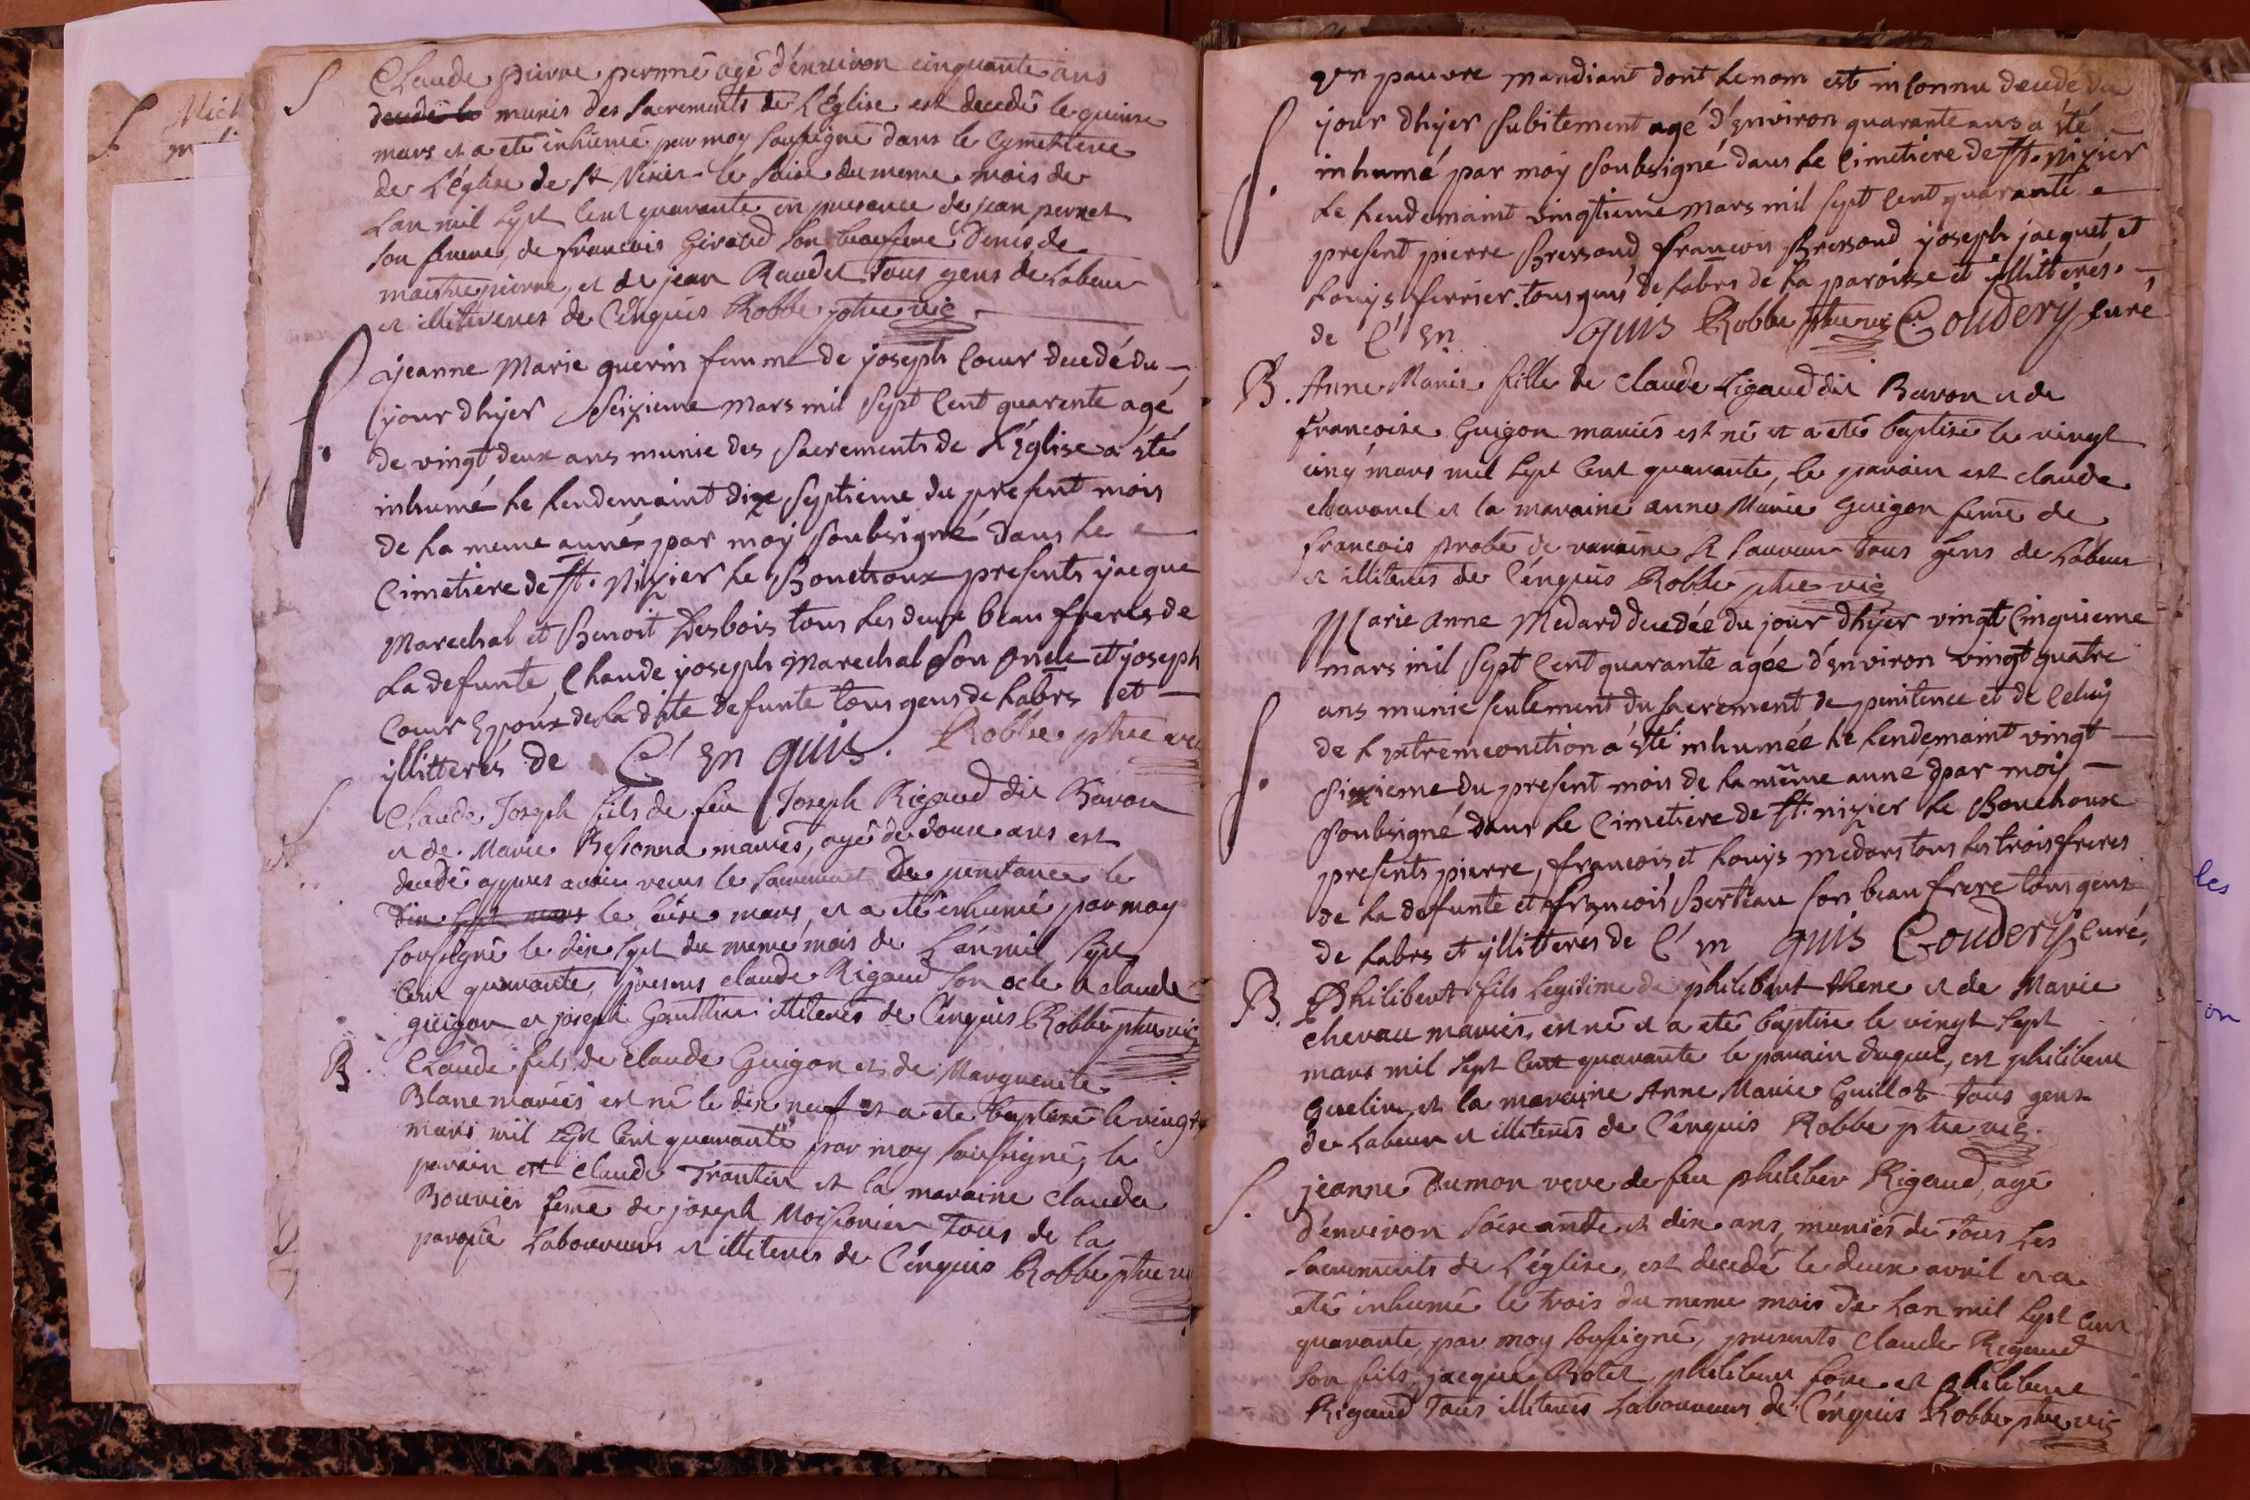 S Claude pierre perrné agé d'environ cinquante ans
decedé le munis des sacrements de L'Eglise est decedé le quinse
mars et a eté inhumé par moy soussigné dans le Cymettiere
de L'église de St Nisier le saise du meme mois de
Lan mil sept cent quarante en presance de jean pernet
son frere, de francois Giroud son beaufrere Denis de
maistre pierre, et de jean Raudet tous gens de Labeur
et illiterés de C'enquis Robbe ptre vic
S. jeanne Marie guerin femme de joseph Cœur decedé du
jour dhyer seizieme mars mil sept Cent quarente agé
de vingt deux ans munie des sacrements de L'Eglise a été
inhumé le lendemaint dixe septieme du present mois
de la meme année par moy soubsigné dans le
Cimetiere de st. Nizier le Bouchoux presents jacque
Marechal et Benoit Desbois tous les deux beau freres de
La defunte, Claude joseph Marechal son oncle et joseph
Cœur Epoux de la dite defunte tous gens de Labrs et
yllitterés de C'enquis. Robbe ptre vic
S Claude Joseph fils de feu Joseph Rigaud dit Baron
et de Marie Besionna mariés, agé de douse ans est
decedé appres avoir recus le sacrement De penitance le
dix sept mars le saise mars, et a eté inhumé par moy
soussigné le dix sept du meme mois de L'an mil sept
Cent quarante, presens claude Rigaud son ocle et claude
guigon et joseph Gauttier illiterés de C'enquis Robbe ptre vic
B. Claude fils de claude Guigon et de Marguerite
Blanc mariés est né le dix neuf et a eté baptisé le vingt
mars mil sept Cent quarante par moy soussigné, le
parain est Claude Trontin et la maraine Clauda
Bouvier feme de joseph Moissonier Tous de la
paroisse Laboureurs et illiterés de C'enquis Robbe ptre vic
S. Vn pauvre mandiant dont le nom est inconnu decedé du
jour dhyer subitement agé d'Environ quarante ans a été
inhumé par moy soubsigné dans le Cimetiere de st. Nizier
Le Lendemaint vingtieme mars mil sept Cent quarante
present pierre Bressoud, francois Bressoud joseph jacquet, et
Louys ferrier. tous gens de Labrs de la paroisse et yllitterés.
de C'En quis Robbe ptre vic Goudery Curé
B. Anne Marie fille de Claude Rigaud dit Baron et de
francoise Guigon mariés est né et a eté baptisé le vingt
cinq mars mil sept Cent quarante, le parain est claude
chavanel et la maraine anne Marie Guigon feme de
francois probe de varaine St sauveur tous gens de Labeur
et illiterés de C'enquis Robbe ptre vic
S. Marie Anne Medard decedée du jour dhyer vingt Cinquieme
mars mil sept Cent quarante agée d'Environ vingt quatre
ans munie seulement du sacrement de penitence et de Celuy
de L'extremeonction a été inhumée le Lendemaint vingt
sixieme du present mois de la même anné par moy
soubsigné dans le Cimetiere de st. nizier le Bouchoux
presents pierre, francois et Louys Medars tous les trois freres
de la defunte et francois Berteau son beau frere tous gens
de Labrs et yllitterés de C'en quis Goudery Curé,
B. Philibert fils legitime de philibert thene et de Marie
chevau mariés, est né et a eté baptisé le vingt sept
mars mil sept Cent quarante le parain duquel, est philibert
Guelin, et la maraine Anne Marie Guillot tous gens
de Labeur et illiterés de C'enquis Robbe ptre vic.
S. jeanne Dumon veve de feu philiber Rigaud, agé
d'environ soixante et dix ans, muniés de tous les
sacrements de L'église, est decedé le deux avril et a
eté inhumé le trois du meme mois de Lan mil sept Cent
quarante, par moy soussigné, presents Claude Rigaud
son fils, jacque Rolet, philibert fore et philibert
Rigaud tous illiterés Laboureurs de C'enquis Robbe ptre vic
les
on